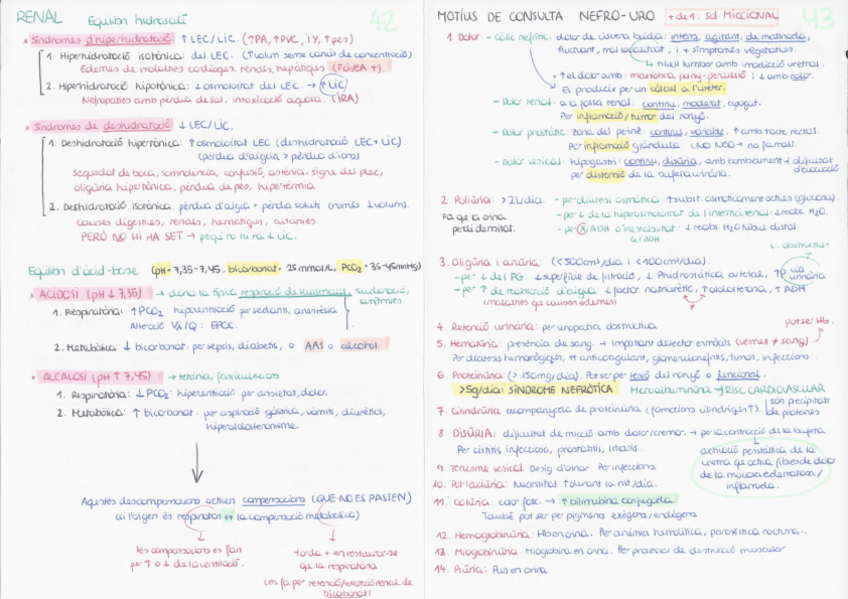 RENAL Equilibri hidrosalí 42
× Síndromes d'hiperhidratació ↑ LEC/LIC. (↑PA, ↑PVC, IY, ↑pes)
1. Hiperhidratació isotònica: del LEC. (↑volum sense canvis de concentració)
Edemes de malalties cardíaques, renals, hepàtiques (FÒVEA +).
2. Hiperhidratació hipotònica: ↓ osmolaritat del LEC. → ↑ LIC
Nefropaties amb pèrdua de sal, intoxicació aquosa. (IRA)
× Síndromes de deshidratació ↓ LEC/LIC.
1. Deshidratació hipertònica: ↑ osmolaritat LEC (deshidratació LEC + LIC).
(pèrdua d'aigua > pèrdua d'ions)
Sequedat de boca, somnolència, confusió, astènia, signe del plec,
oligúria hipertònica, pèrdua de pes, hipertèrmia.
2. Deshidratació isotònica: pèrdua d'aigua = pèrdua soluts (només ↓volum).
causes digestives, renals, hemàtiques, cutànies.
PERÒ NO HI HA SET → perquè no hi ha ↓ LIC.
Equilibri d'àcid-base (pH = 7,35-7,45, bicarbonat = 25 mmol/L, PCO2 = 35-45mmHg)
× ACIDOSI (pH ↓ 7,35) → dóna la típica respiració de Kussmaul, sudoració, arítmies
1. Respiratòria: ↑ PCO2 hipoventilació per sedants, anestèsia
Alteració VA/Q: EPOC.
2. Metabòlica: ↓ bicarbonat: per sepsis, diabetis, o AAS o alcohol.
× ALCALOSI (pH ↑ 7,45) → tetània, fasciculacions
1. Respiratòria: ↓ PCO2: hiperventilació per ansietat, dolor.
2. Metabòlica: ↑ bicarbonat: per aspiració gàstrica, vòmits, diürètics,
hiperaldosteronisme.
Aquestes descompensacions activen compensacions (QUE NO ES PASSEN)
(si l'origen és respiratori ↔ la compensació metabòlica)
les compensacions es fan
per ↑ o ↓ de la ventilació.
tarda + en restaurar-se
que la respiratòria
(es fa per retenció/excreció renal de
bicarbonat)
MOTIUS DE CONSULTA NEFRO-URO + de 1: Sd MICCIONAL 43
1. Dolor - Còlic nefrític: dolor de víscera buida: intens, agitant, de matinada,
fluctuant, mal localitzat, i + símptomes vegetatius.
↳ nivell lumbar amb irradiació uretral.
• ↑ el dolor amb: maniobra puny-percussió i ↓ amb calor.
Es produeix per un càlcul a l'urèter.
- Dolor renal: a la fossa renal: continu, moderat, apagat.
Per inflamació/tumor del ronyó.
- Dolor prostàtic: zona del periné: continu, variable, ↑ amb tacte rectal.
Per inflamació glàndula (NO NEO → no fa mal).
- Dolor vesical: hipogastri: continu, disúria, amb bombament i dificultat
d'evacuació
Per distensió de la bufeta urinària.
2. Poliúria: >2L/dia. - per diüresi osmòtica ↑ subst. osmòticament actives (glucosa).
- per ↓ de la hiperosmolaritat de l'interstici renal: ↓ reabs. H2O.
- per ⊗ ADH o insensibilitat ↓ reabs. H2O túbul distal.
a l'ADH
Fa que la orina
perdi densitat.
3. Oligúria i anúria: (<500cm³/dia i <100cm³/dia). L. obstructiva
- per ↓ del FG: ↓ superfície de filtració, ↓ Phidrostàtica arterial, ↑P via urinària
- per ↑ de reabsorció d'aigua ↓ factor natriurètic, ↑ aldosterona, ↑ ADH
(malalties que causen edemes)
4. Retenció urinària: per uropatia obstructiva
pot ser Hb.
5. Hematúria: presència de sang. → Important detectar eritròcits (vermell ≠ sang)
Per diàtesis hemorràgiques, tt anticoagulant, glomerulonefritis, tumors, infeccions...
6. Proteinúria: (> 150mg/dia). Pot ser per lesió del ronyó o funcional.
>5g/dia: SÍNDROME NEFRÒTICA Microalbuminúria → RISC CARDIOVASCULAR
7. Cilindrúria: acompanyada de proteinúria (formacions cilíndriques ↑).
són precipitats
de proteïnes
8. DISÚRIA: dificultat de micció amb dolor/cremor. → per la contracció de la bufeta
Per cistitis infecciosa, prostatitis, litiasis.
activació peristàltica de la
uretra que activa fibres de dolor
de la mucosa edematosa/
inflamada.
9. Tenesme vesical. Desig d'orinar. Per infeccions
10. Pol·laciúria: Necessitat ↑ durant la nit/dia.
11. Colúria: color fosc. → ↑ bilirubina conjugada.
També pot ser per pigments exògens/endògens
12. Hemoglobinúria: Hb en orina. Per anèmia hemolítica, paroxística nocturna...
13. Mioglobinúria. Mioglobina en orina. Per processos de destrucció muscular
14. Piúria: Pus en orina